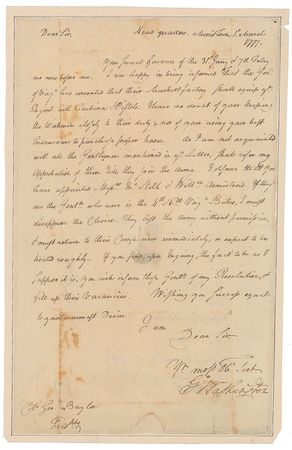 Dear Sir,
Head quarters, Morristown 1. March
1777.
Your several favours of the 31st Jany. & 7th Feby
are now before me. I am happy in being informed that the Govr.
of Virga. has consented that their Musket factory shall equip yr.
Regimt with Carbines & Pistols. I have no doubt of your keeping
the Workmen closely to their duty & of your using your best
Endeavours to purchase proper horses. As I am not acquainted
with all the Gentlemen mentioned in yr. Letter, shall defer my
Approbation of them till they join the army. I observe that
you have appointed Messrs. & Willm. Armistead. If they
are the Gentn. who were in the & 6th Virga. I must
disapprove the Choice. They left the Army without permission,
& must return to their Comps. immediately, or expect to be
treated roughly. If you find, upon Inquiry, the fact to be as I
suppose it is, you will inform these Gentn. of my Resolution, &
fill up their Vacancies. Wishing you Success equal
to your warmest Desire
I am
Dear Sir
Yr. most Ob. Servt
Go Washington
Colo. Geo Baylor